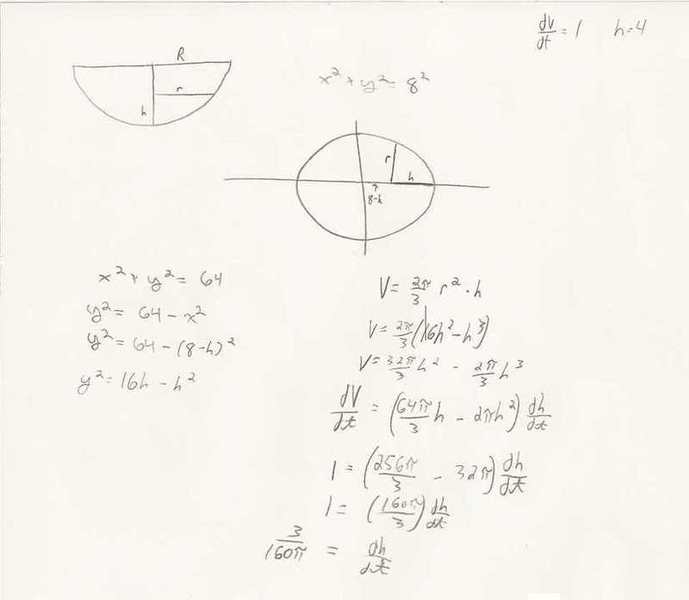 dV/dt = 1 h=4
R
r
h
x² + y² = 8²
r
h
8-h
x² + y² = 64
y² = 64 - x²
y² = 64 - (8-h)²
y² = 16h - h²
V = 2π/3 r² · h
V = 2π/3 (16h² - h³)
V = 32π/3 h² - 2π/3 h³
dV/dt = (64π/3 h - 2πh²) dh/dt
1 = (256π/3 - 32π) dh/dt
1 = (160π/3) dh/dt
3/160π = dh/dt